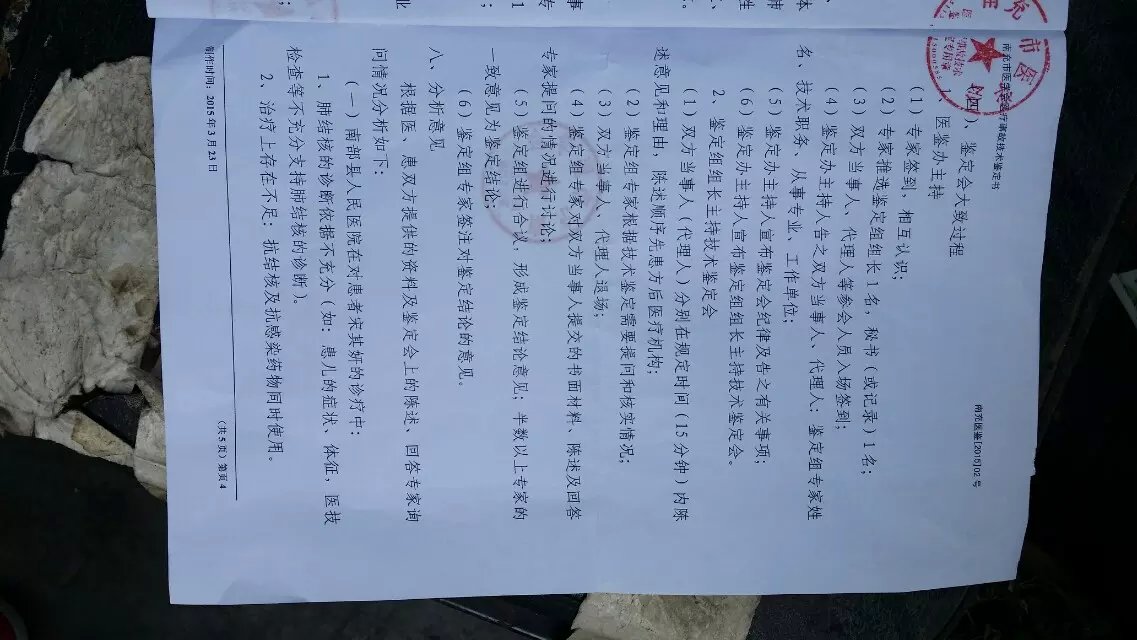 南充市医学会医疗事故技术鉴定书
南充医鉴[2015]02号
(四)、鉴定会大致过程
1、医鉴办主持
(1)专家签到,相互认识;
(2)专家推选鉴定组组长1名,秘书(或记录)1名;
(3)双方当事人、代理人等参会人员入场签到;
(4)鉴定办主持人告之双方当事人、代理人:鉴定组专家姓
名、技术职务、从事专业、工作单位;
(5)鉴定办主持人宣布鉴定会纪律及告之有关事项;
(6)鉴定办主持人宣布鉴定组组长主持技术鉴定会。
2、鉴定组组长主持技术鉴定会
(1)双方当事人(代理人)分别在规定时间(15分钟)内陈
述意见和理由,陈述顺序先患方后医疗机构;
(2)鉴定组专家根据技术鉴定需要提问和核实情况;
(3)双方当事人、代理人退场;
(4)鉴定组专家对双方当事人提交的书面材料、陈述及回答
专家提问的情况进行讨论;
(5)鉴定组进行合议,形成鉴定结论意见;半数以上专家的
一致意见为鉴定结论;
(6)鉴定组专家签注对鉴定结论的意见。
八、分析意见
根据医、患双方提供的资料及鉴定会上的陈述、回答专家询
问情况分析如下:
(一)南部县人民医院在对患者宋其妍的诊疗中:
1、肺结核的诊断依据不充分(如:患儿的症状、体征,医技
检查等不充分支持肺结核的诊断)。
2、治疗上存在不足:抗结核及抗感染药物同时使用。
制作时间:2015年3月23日
(共5页)第页4